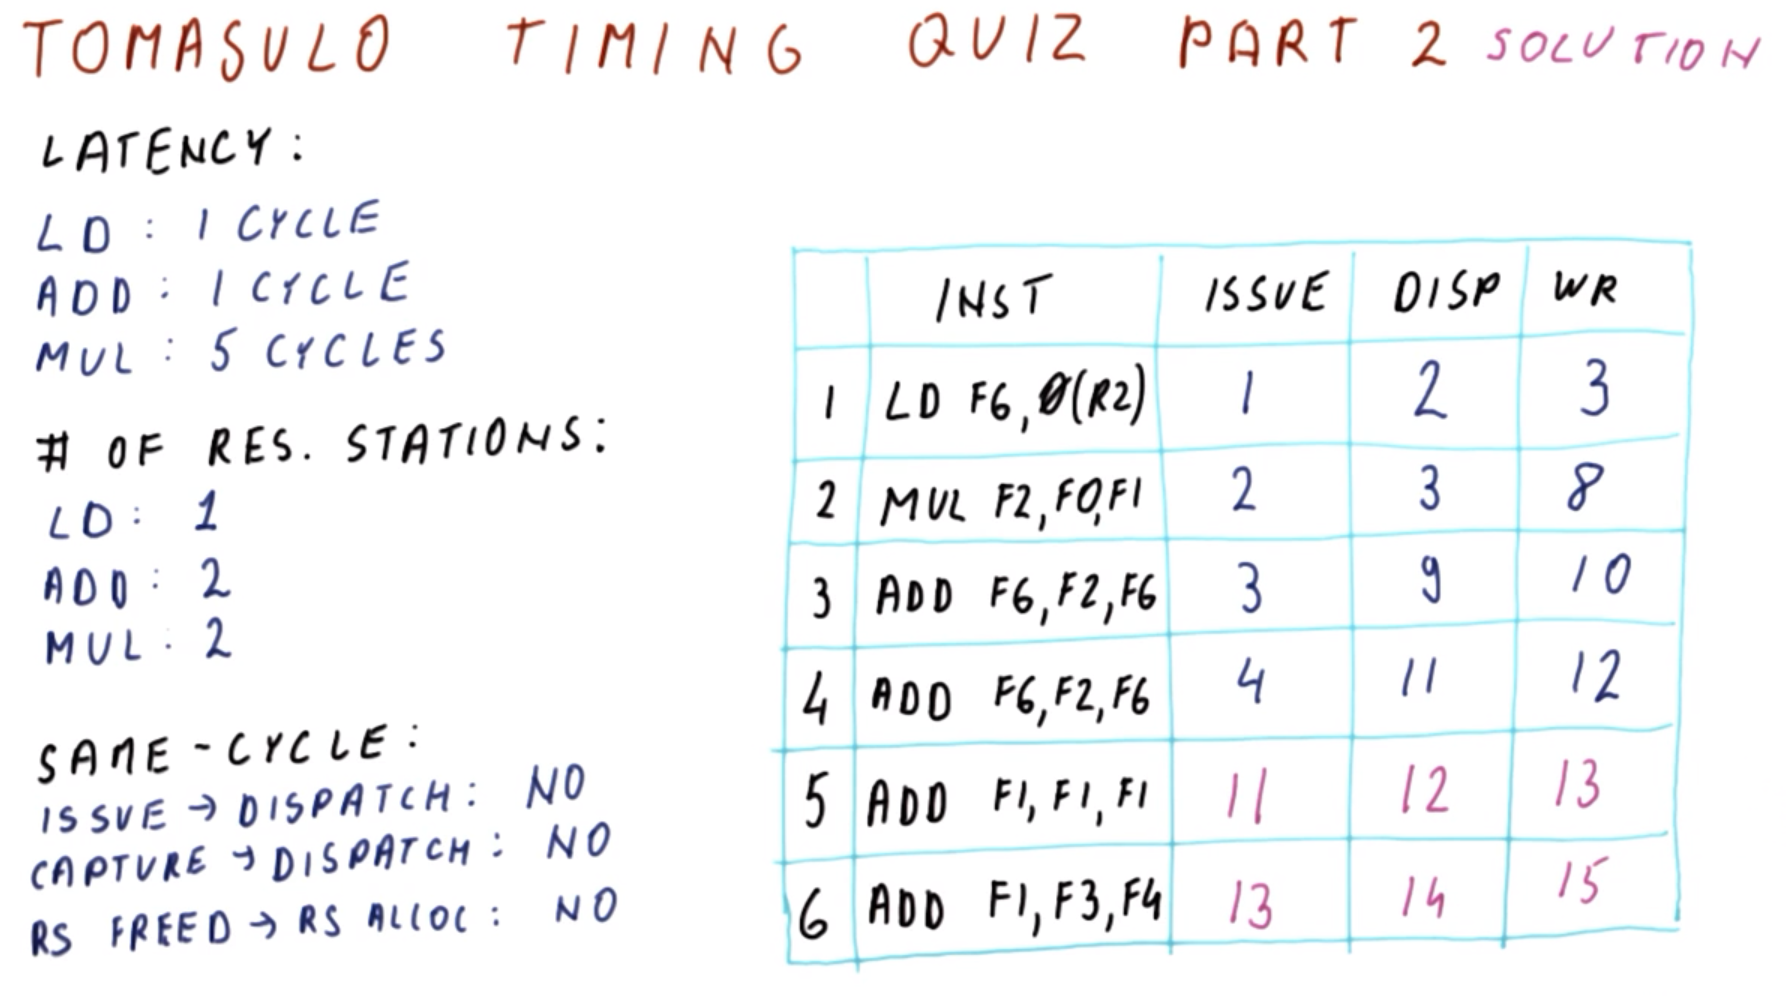 TOMASULO TIMING QUIZ PART 2 SOLUTION
LATENCY:
LD : 1 CYCLE
ADD : 1 CYCLE
MUL : 5 CYCLES
# OF RES. STATIONS:
LD : 1
ADD : 2
MUL : 2
SAME-CYCLE:
ISSUE → DISPATCH : NO
CAPTURE → DISPATCH : NO
RS FREED → RS ALLOC : NO
INST ISSUE DISP WR
1 LD F6, 0(R2) 1 2 3
2 MUL F2, F0, F1 2 3 8
3 ADD F6, F2, F6 3 9 10
4 ADD F6, F2, F6 4 11 12
5 ADD F1, F1, F1 11 12 13
6 ADD F1, F3, F4 13 14 15